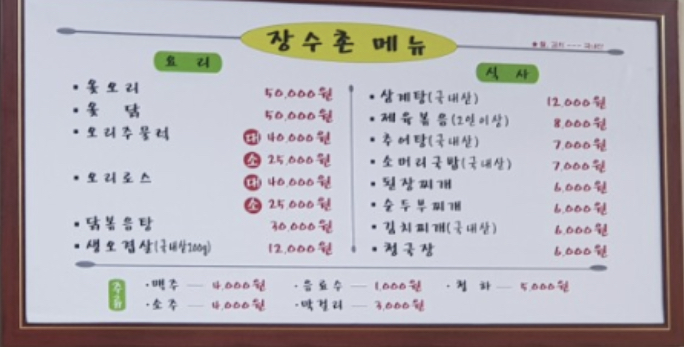 장수촌 메뉴
요리
• 옻오리 50,000원
• 옻 닭 50,000원
• 오리주물럭 대 40,000원
소 25,000원
• 오리로스 대 40,000원
소 25,000원
• 닭볶음탕 30,000원
• 생오겹살(국내산200g) 12,000원
식사
• 삼계탕(국내산) 12,000원
• 제육볶음(2인이상) 8,000원
• 추어탕(국내산) 7,000원
• 소머리국밥(국내산) 7,000원
• 된장찌개 6,000원
• 순두부찌개 6,000원
• 김치찌개(국내산) 6,000원
• 청국장 6,000원
주류
·맥주 — 4,000원 ·음료수 — 1,000원 ·청하 — 5,000원
·소주 — 4,000원 ·막걸리 — 3,000원